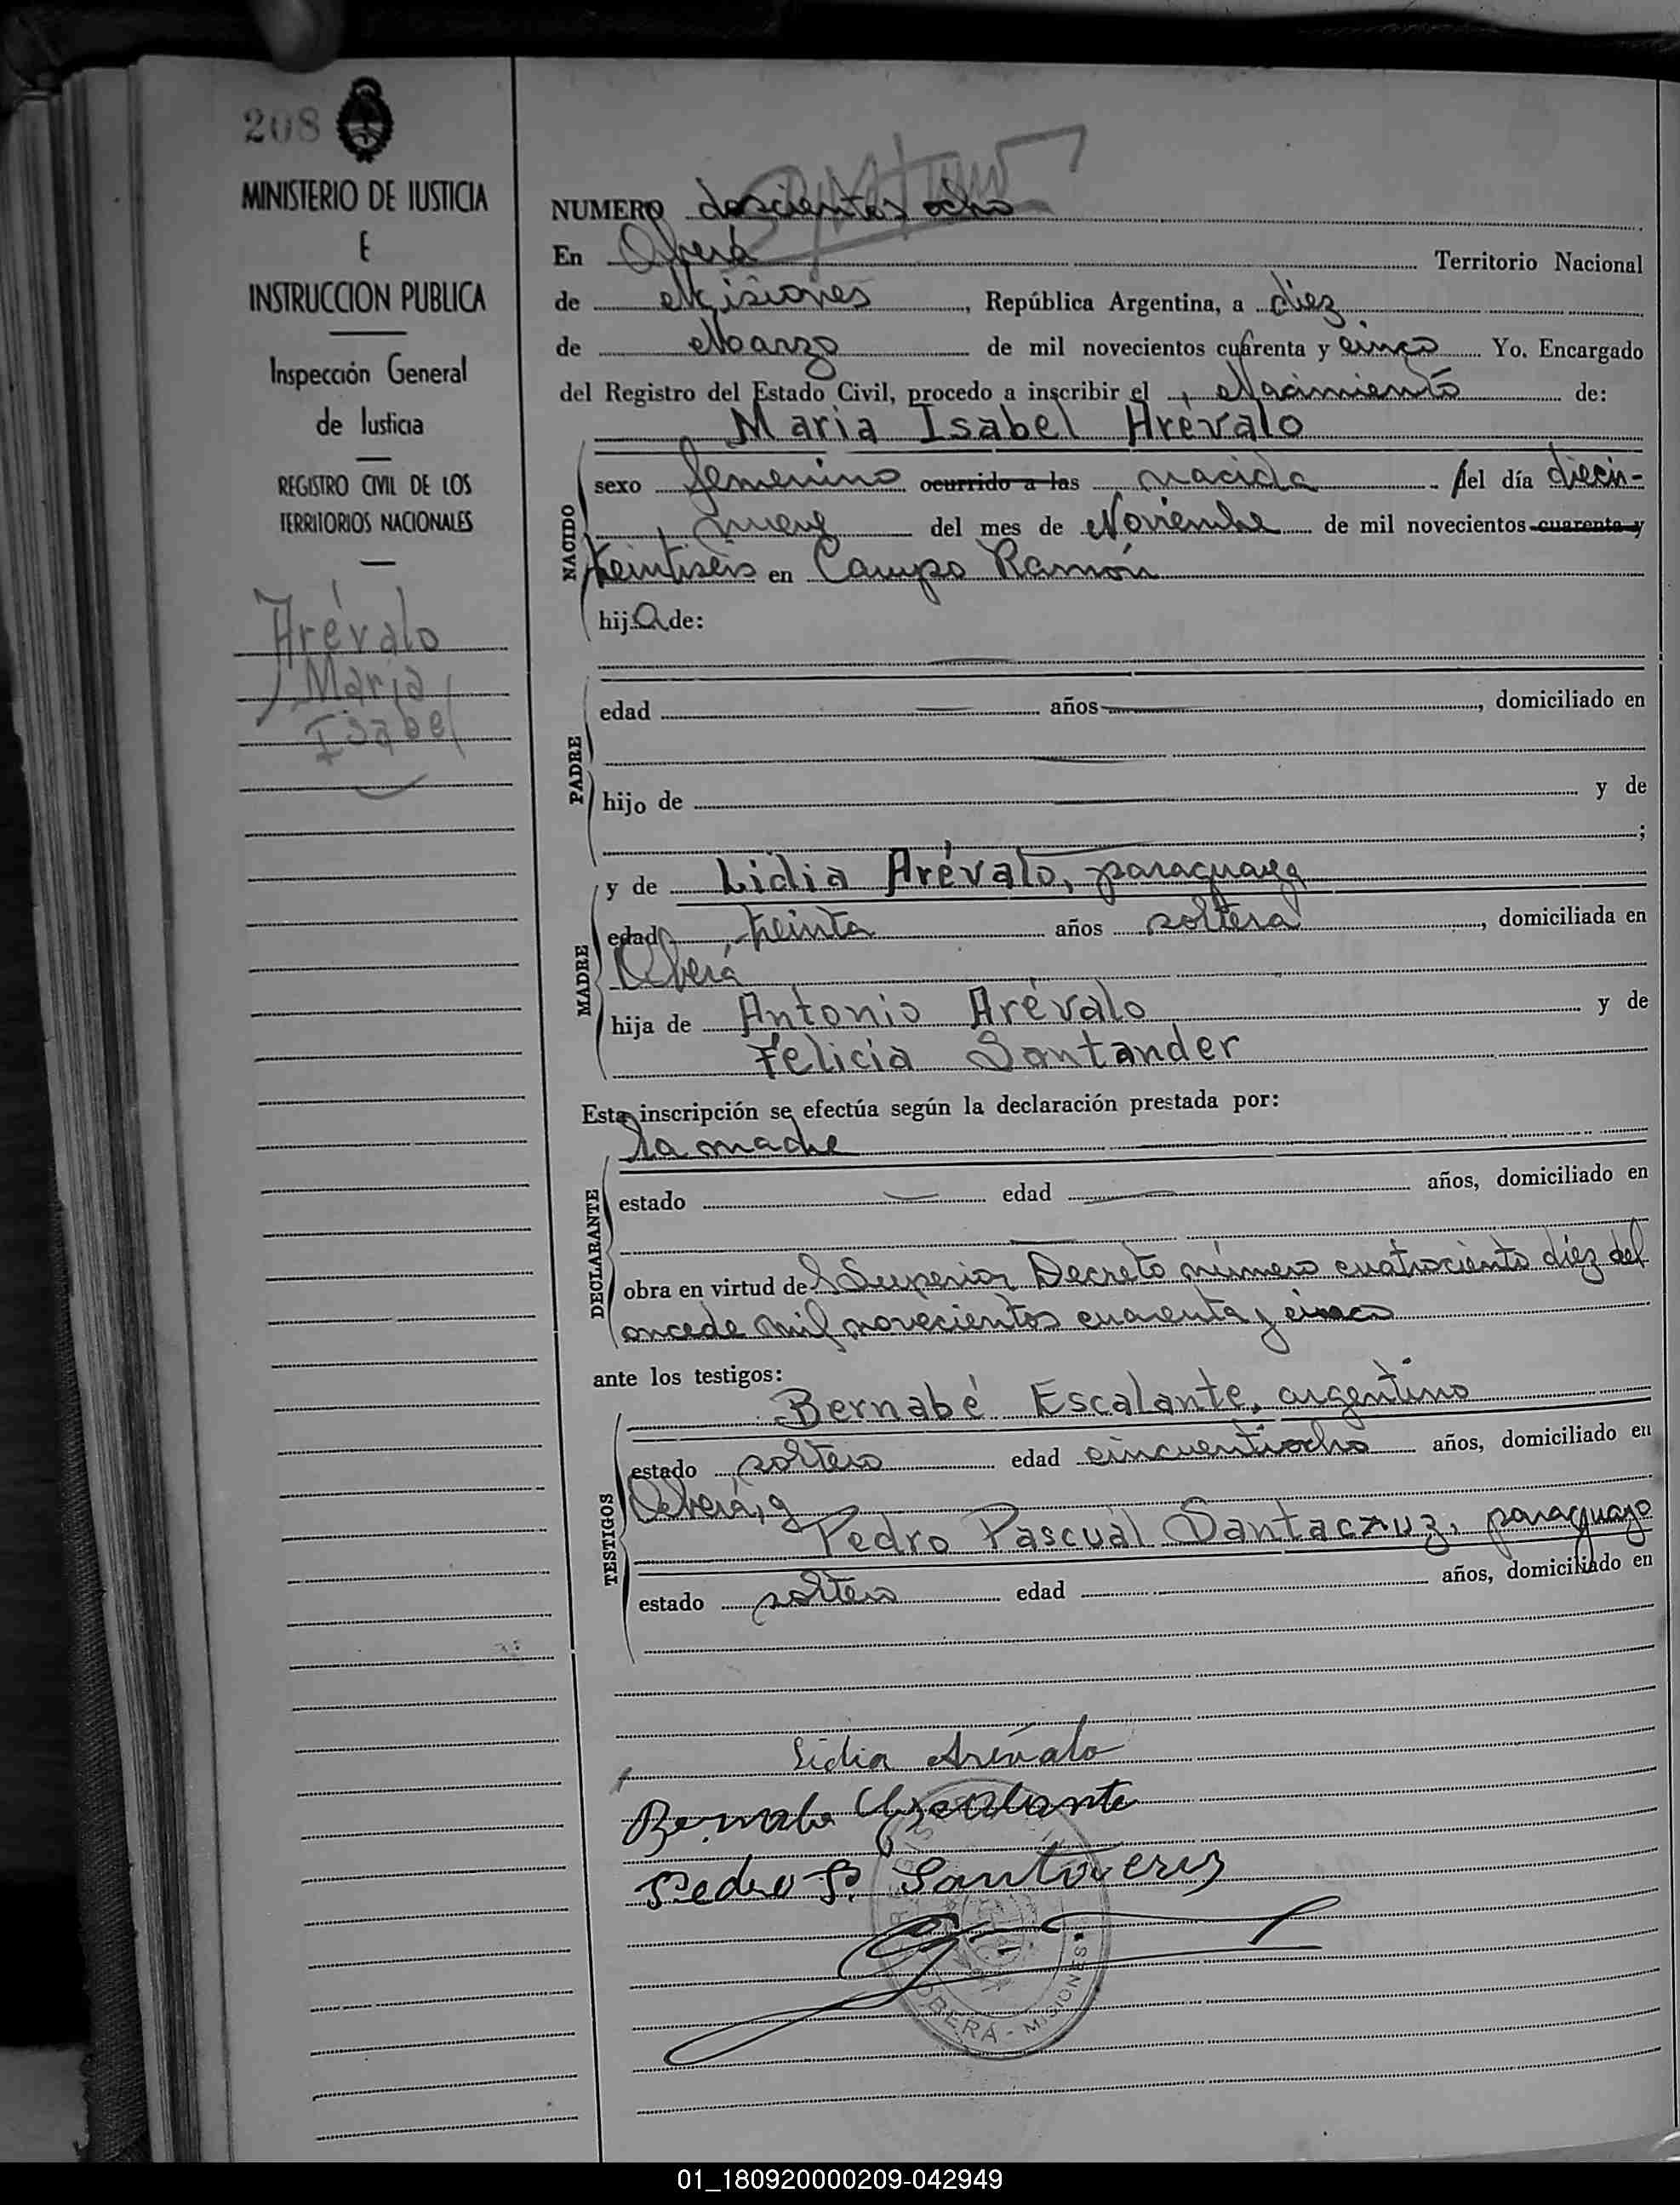 208
MINISTERIO DE JUSTICIA
E
INSTRUCCION PUBLICA
Inspección General
de Justicia
REGISTRO CIVIL DE LOS
TERRITORIOS NACIONALES
Arévalo
Maria
Isabel
NUMERO doscientos ocho
En Oberá Territorio Nacional
de Misiones, República Argentina, a diez
de Marzo de mil novecientos cuarenta y cinco Yo. Encargado
del Registro del Estado Civil, procedo a inscribir el Nacimiento de:
Maria Isabel Arévalo
NACIDO
sexo femenino ocurrido a las nacida del día diecin-
nueve del mes de Noviembre de mil novecientos cuarenta y
treintiseis en Campo Ramón
hija de:
PADRE
edad años, domiciliado en
hijo de y de
;
MADRE
y de Lidia Arévalo, paraguaya
edad treinta años soltera, domiciliada en
Oberá
hija de Antonio Arévalo y de
Felicia Santander
Esta inscripción se efectúa según la declaración prestada por:
la madre
DECLARANTE
estado edad años, domiciliado en
obra en virtud del Superior Decreto número cuatrociento diez del
once de mil novecientos cuarenta y cinco
ante los testigos:
TESTIGOS
Bernabé Escalante, argentino
estado soltero edad cincuentiocho años, domiciliado en
Oberá, y
Pedro Pascual Santacruz, paraguayo
estado soltero edad años, domiciliado en
Lidia Arévalo
Bernabe Escalante
Pedro P. Santacruz
OBERÁ - MISIONES
01_180920000209-042949